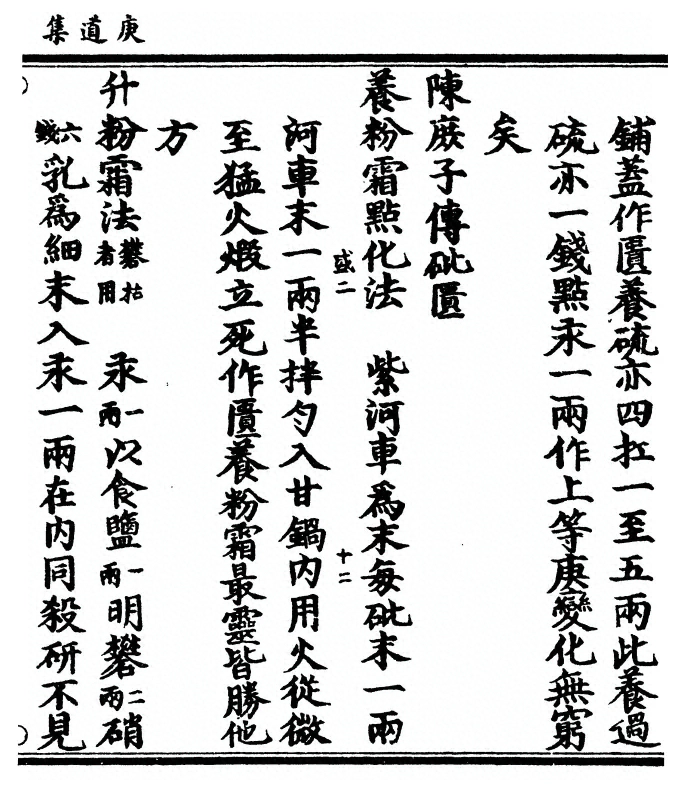 庚道集
鋪蓋作匱養硫亦四扛一至五兩此養過
硫亦一錢點汞一兩作上等庚變化無窮
矣
陳庶子傳砒匱
養粉霜點化法 紫河車為末每砒末一兩
或二 十二
河車末一兩半拌勻入甘鍋內用火從微
至猛火煅立死作匱養粉霜最靈皆勝他
方
升粉霜法礬枯者用 汞一兩以食鹽一兩明礬二兩硝
六錢乳為細末入汞一兩在內同殺研不見